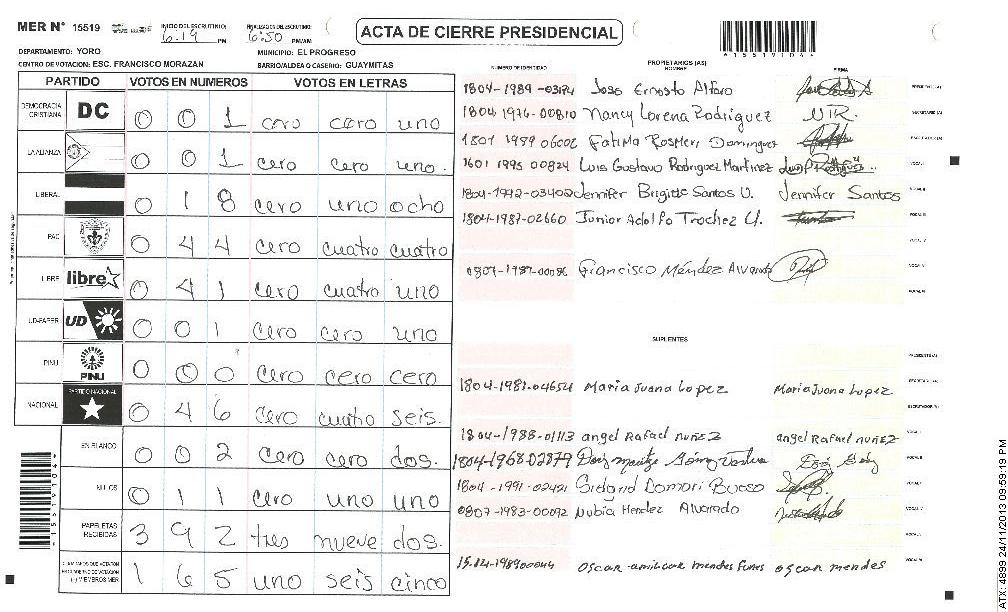 MER Nº 15519 INICIO DEL ESCRUTINIO: 6:19 PM FINALIZACION DEL ESCRUTINIO: 6:50 PM/AM ACTA DE CIERRE PRESIDENCIAL
DEPARTAMENTO: YORO MUNICIPIO: EL PROGRESO
CENTRO DE VOTACION: ESC. FRANCISCO MORAZAN BARRIO/ALDEA O CASERIO: GUAYMITAS
PARTIDO VOTOS EN NUMEROS VOTOS EN LETRAS
DEMOCRACIA CRISTIANA DC 0 0 1 cero cero uno
LA ALIANZA 0 0 1 cero cero uno.
LIBERAL 0 1 8 cero uno ocho
PAC 0 4 4 cero cuatro cuatro
LIBRE libre 0 4 1 cero cuatro uno
UD-FAPER UD 0 0 1 cero cero uno
PINU PINU 0 0 0 cero cero cero
NACIONAL PARTIDO NACIONAL 0 4 6 cero cuatro seis.
EN BLANCO 0 0 2 cero cero dos.
NULOS 0 1 1 cero uno uno
PAPELETAS RECIBIDAS 3 9 2 tres nueve dos.
CIUDADANOS QUE VOTARON EN CUADERNO DE VOTACION (+) MIEMBROS MER 1 6 5 uno seis cinco
NUMERO DE IDENTIDAD PROPIETARIOS (AS) NOMBRE FIRMA
1804-1989-03194 Jose Ernesto Alfaro PRESIDENTE (A)
1804-1976-00810 Nancy Lorena Rodriguez N.R. SECRETARIO (A)
1801 1989 06002 Fatima Rosmeri Dominguez ESCRUTADOR (A)
1601 1995 00824 Luis Gustavo Rodriguez Martinez VOCAL I
1804-1992-03402 Jennifer Brigitte Santos U. Jennifer Santos VOCAL II
1804-1987-02660 Junior Adolfo Trochez U. VOCAL III
VOCAL IV
0807-1987-00086 Francisco Méndez Alvarado VOCAL V
VOCAL VI
SUPLENTES
PRESIDENTE (A)
1804-1981-04654 Maria Juana Lopez Maria Juana Lopez SECRETARIO (A)
ESCRUTADOR (A)
1804-1988-01113 angel Rafael nuñez angel Rafael nuñez VOCAL I
1804-1968-02879 VOCAL II
1804-1991-02421 VOCAL III
0807-1983-00092 Nubia Mendez Alvarado VOCAL IV
VOCAL V
oscar amilcar mendes funes oscar mendes VOCAL VI
ATX: 4899 24/11/2013 09:59:19 PM
*15519104*
*15519104*